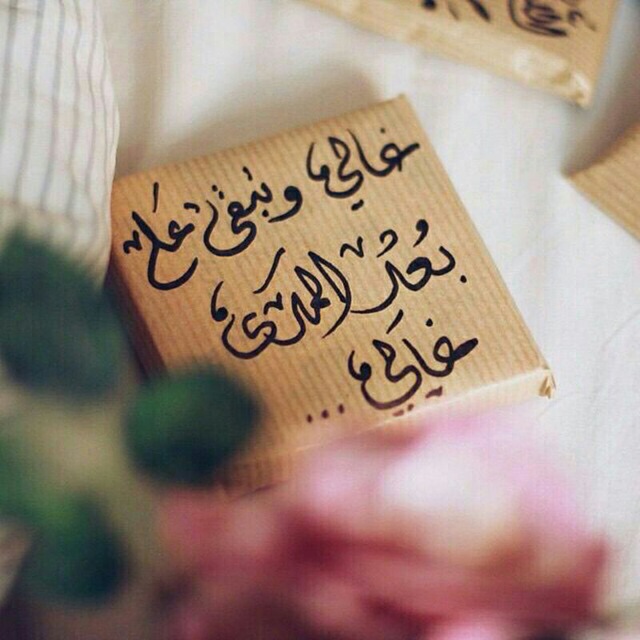 غالي وتبقى على
بُعْد المدى
غَالي ...